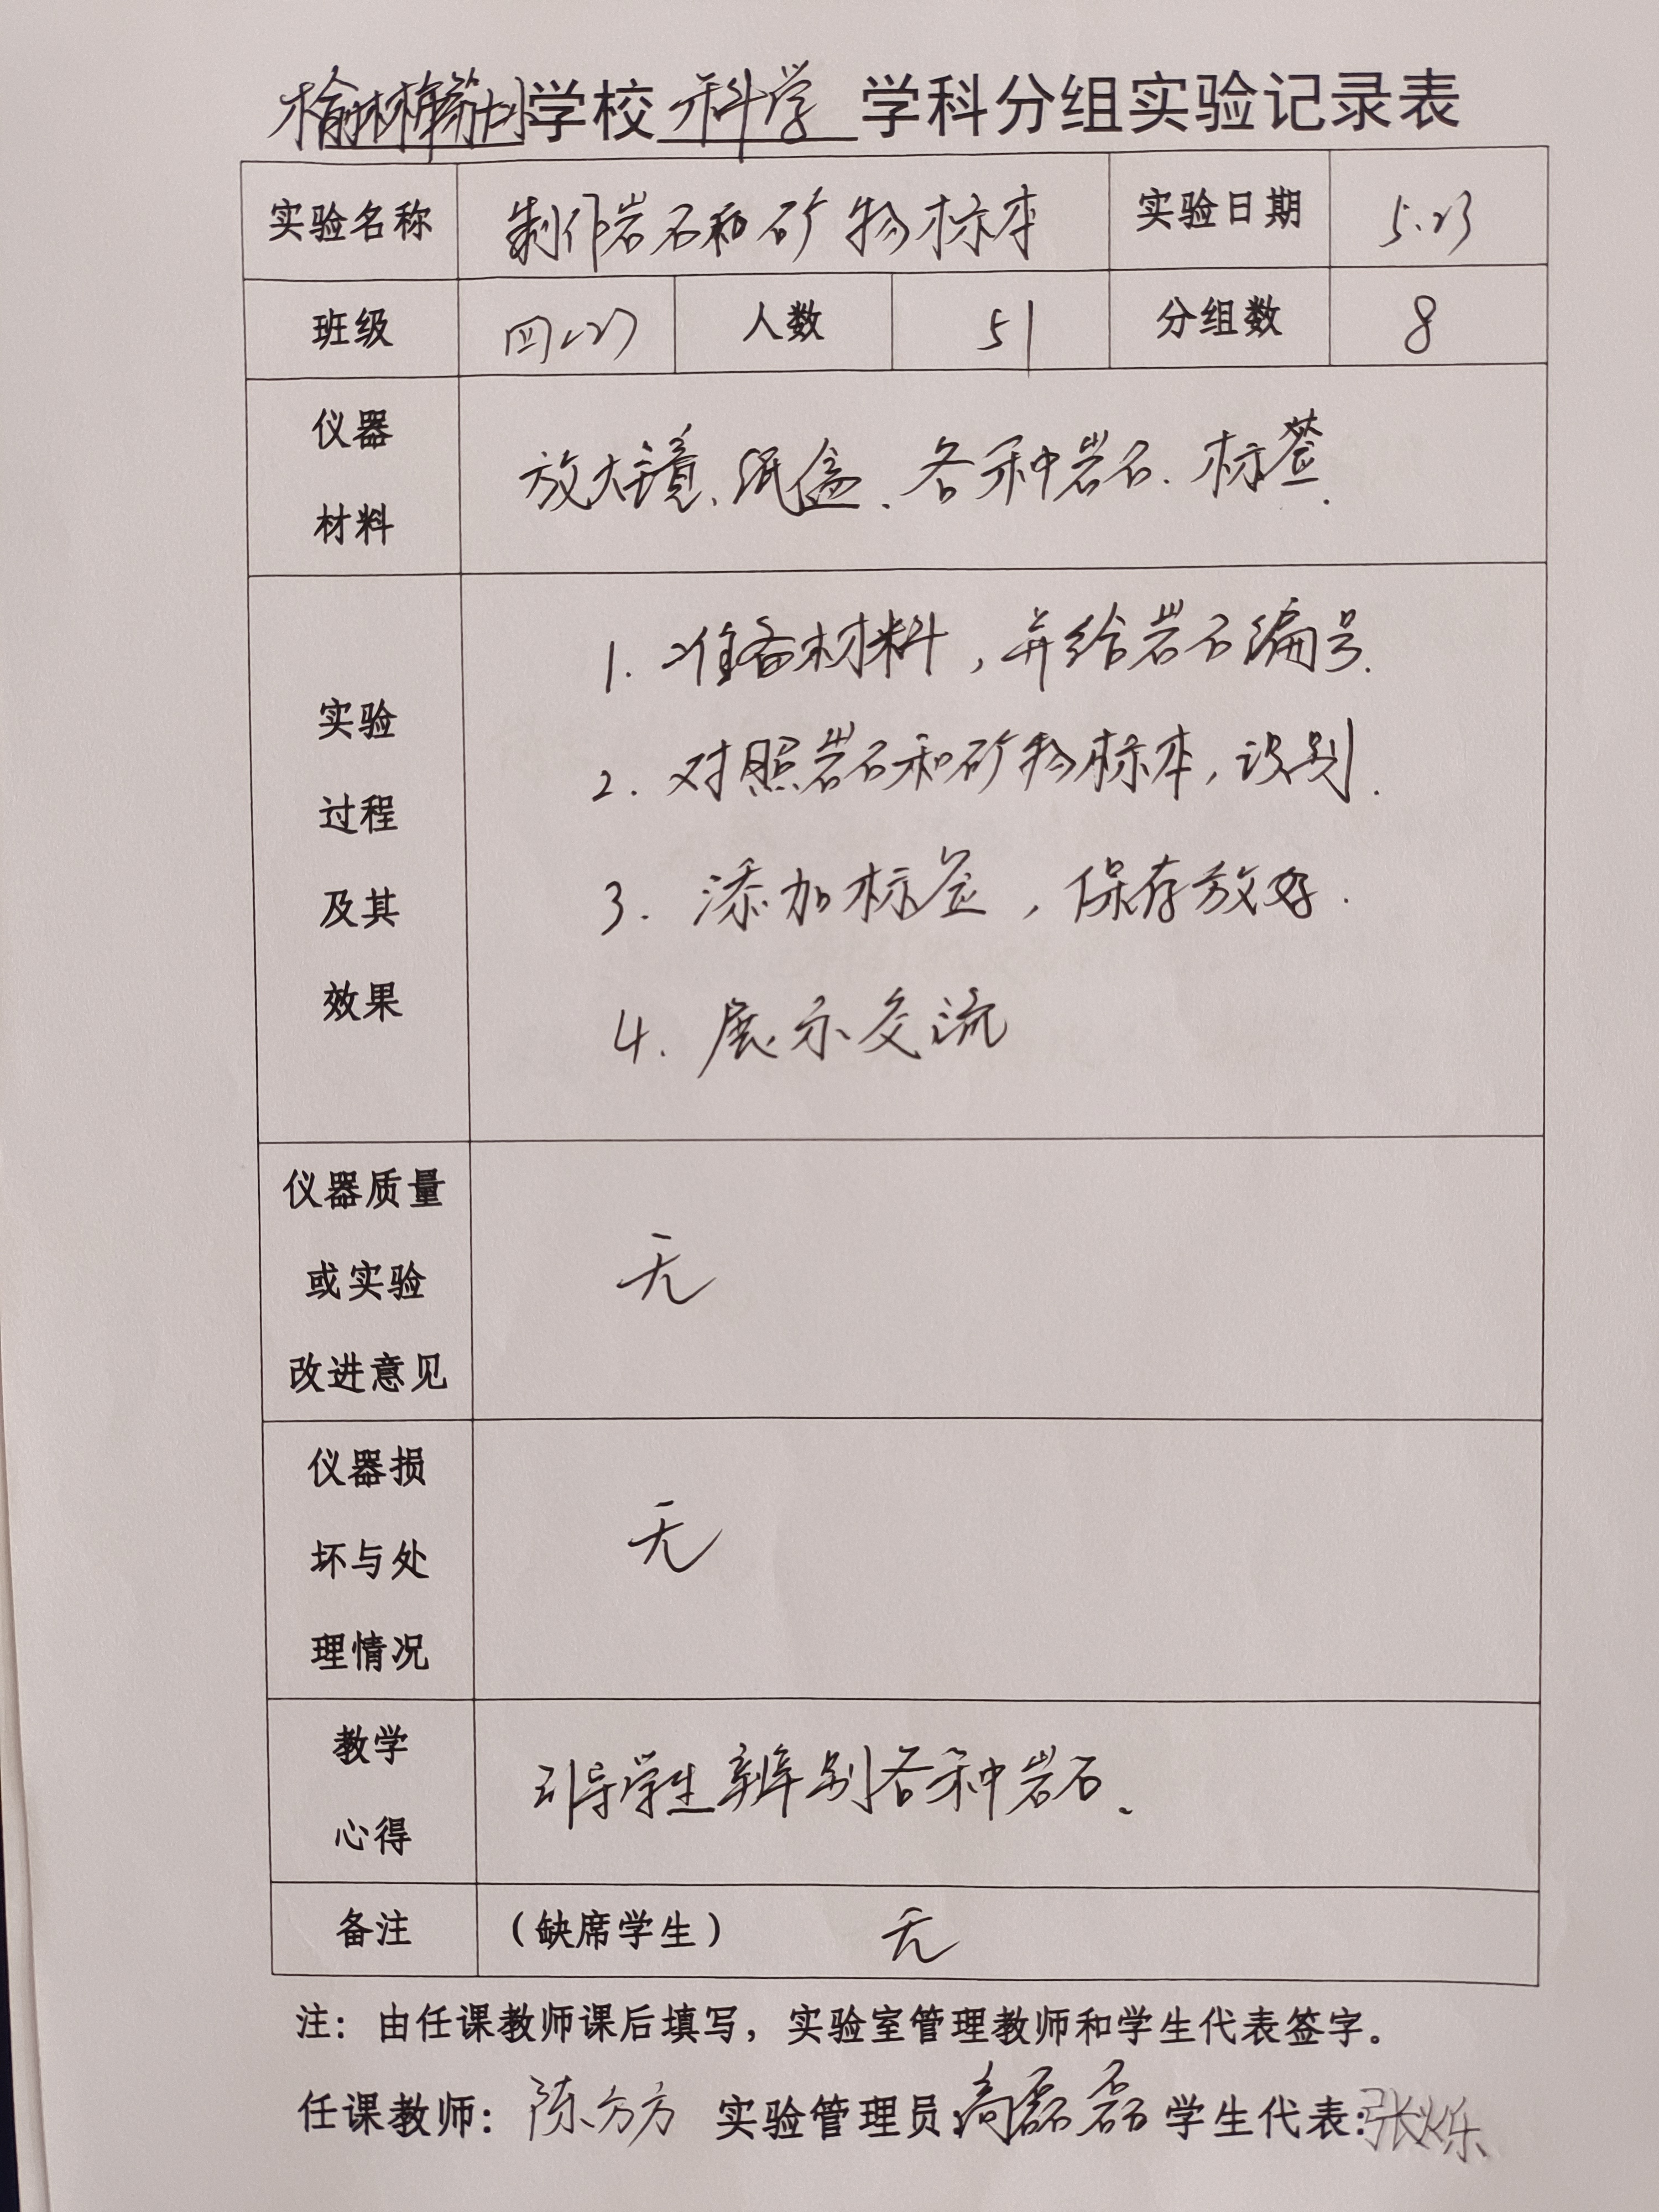 学校 科学 学科分组实验记录表
实验名称 制作岩石和矿物标本 实验日期 5.23
班级 四(2) 人数 51 分组数 8
仪器
材料
放大镜、纸盒、各种岩石、标签.
实验
过程
及其
效果
1. 准备材料,并给岩石编号.
2. 对照岩石和矿物标本,识别.
3. 添加标签,保存放好.
4. 展示交流
仪器质量
或实验
改进意见
无
仪器损
坏与处
理情况
无
教学
心得
引导学生辨别各种岩石、
备注 (缺席学生) 无
注:由任课教师课后填写,实验室管理教师和学生代表签字。
任课教师:陈方方 实验管理员:高磊磊 学生代表:张烁